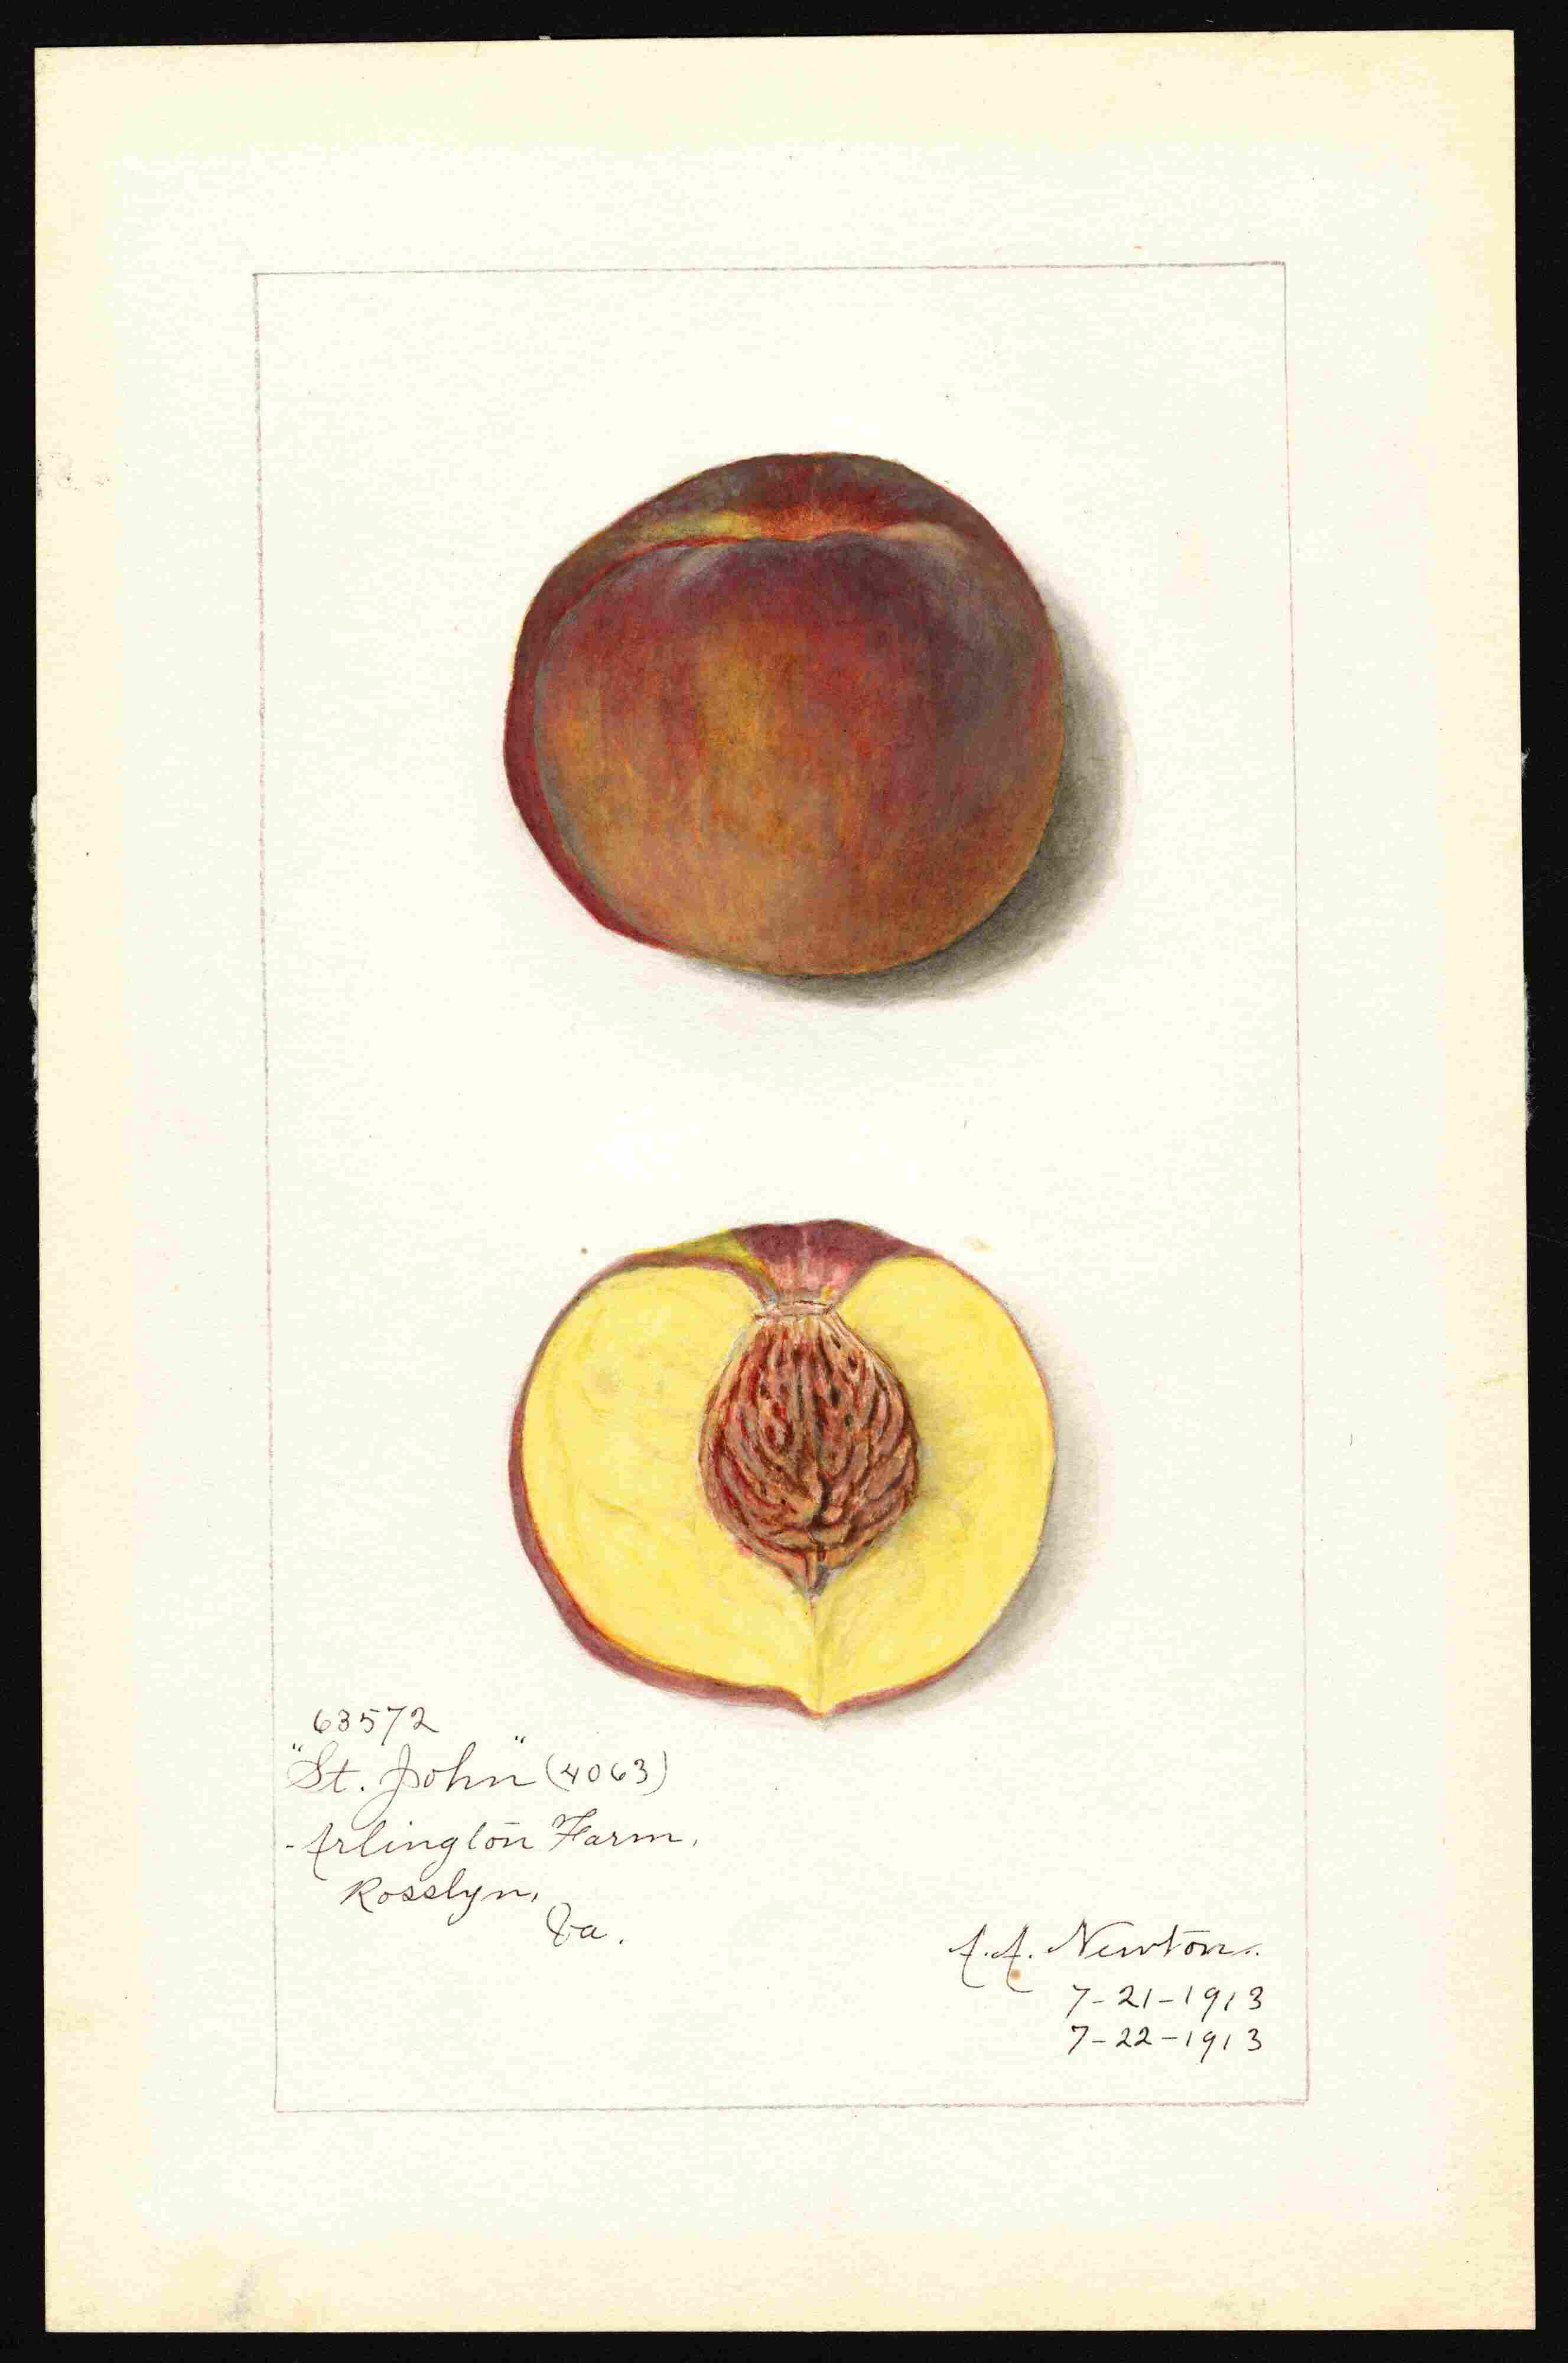 63572
"St. John" (4063)
Arlington Farm,
Rosslyn,
Va.
A.A. Newton.
7-21-1913
7-22-1913